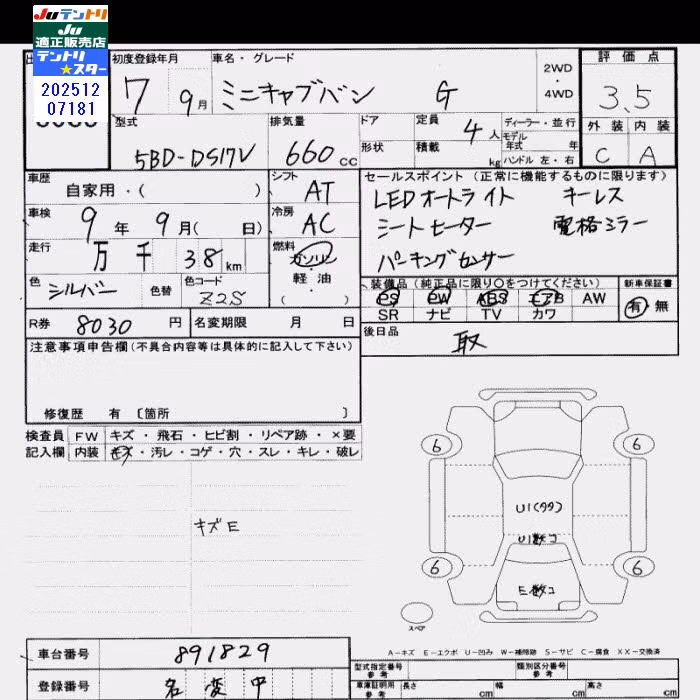 Juテントリ
Ju
適正販売店
テントリ
★スター
202512
07181
初度登録年月
7 9月
車名・グレード
ミニキャブバン G
2WD
4WD
評価点
3.5
外装 内装
C A
型式
5BD-DS17V
排気量
660cc
ドア
形状
定員
4人
積載
kg
ディーラー・並行
モデル
年式 年
ハンドル 左・右
車歴
自家用・( )
シフト
AT
車検
9年 9月( 日)
冷房
AC
走行
万 千 38km
燃料
ガソリン
・
軽油
( )
色
シルバー
色替
色コード
Z2S
セールスポイント(正常に機能するものに限ります)
LEDオートライト キーレス
シートヒーター 電格ミラー
パーキングセンサー
装備品(純正品に限り○をつけてください)
PS PW ABS エアB AW
SR ナビ TV カワ
新車保証書
有 無
R券 8030円
名変期限 月 日
後日品
取
注意事項申告欄(不具合内容等は具体的に記入して下さい)
修復歴 有 [箇所 ]
検査員 FW キズ・飛石・ヒビ割・リペア跡・×要
記入欄 内装 キズ・汚レ・コゲ・穴・スレ・キレ・破レ
キズE
6 6
U1(タタ)
U1数コ
6 6
E数コ
スペア
A-キズ E-エクボ U-凹み W-補修跡 S-サビ C-腐食 XX-交換済
車台番号 891829
登録番号 名変中
型式指定番号
参考
類別区分番号
参考
車庫証明用
参考
長さ cm 幅 cm 高さ cm